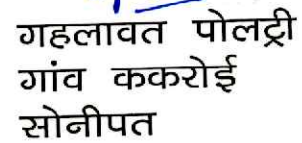 गहलावत पोलट्री
गांव ककरोई
सोनीपत